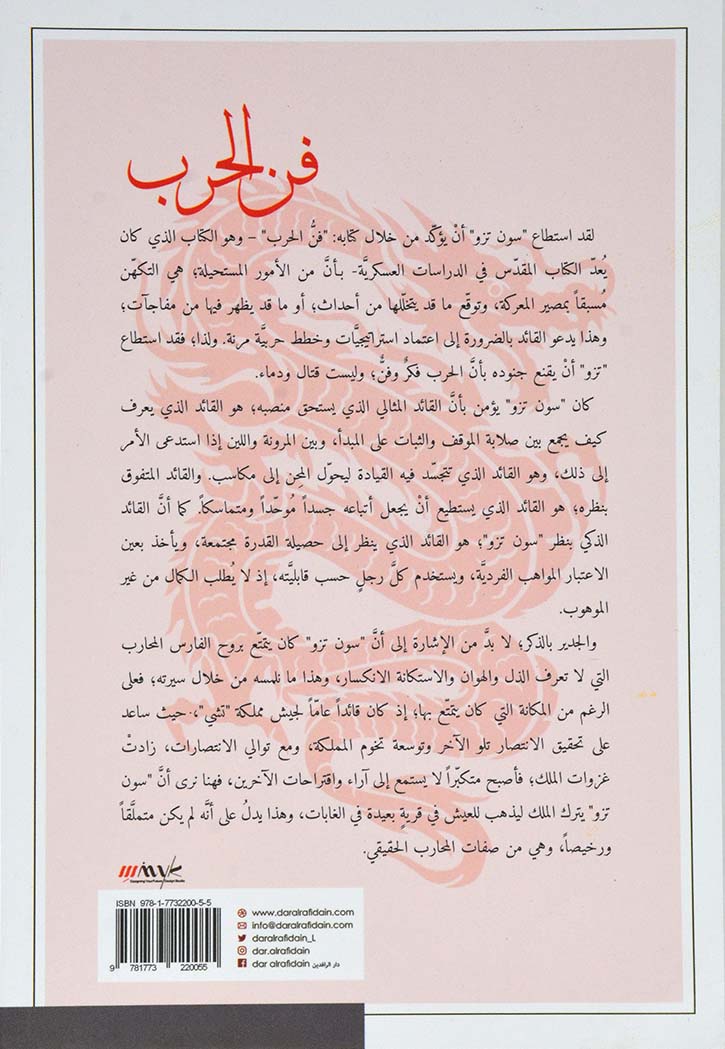 فن الحرب
لقد استطاع "سون تزو" أنْ يؤكّد من خلال كتابه: "فنُّ الحرب" – وهو الكتاب الذي كان
يُعدّ الكتاب المقدّس في الدراسات العسكريَّة- بأنَّ من الأمور المستحيلة؛ هي التكهّن
مُسبقاً بمصير المعركة، وتوقّع ما قد يتخلّلها من أحداث؛ أو ما قد يظهر فيها من مفاجآت؛
وهذا يدعو القائد بالضرورة إلى اعتماد استراتيجيَّات وخطط حربيَّة مرنة. ولذا؛ فقد استطاع
"تزو" أنْ يقنع جنوده بأنَّ الحرب فكرٌ وفنٌّ؛ وليست قتال ودماء.
كان "سون تزو" يؤمن بأنَّ القائد المثالي الذي يستحق منصبه؛ هو القائد الذي يعرف
كيف يجمع بين صلابة الموقف والثبات على المبدأ، وبين المرونة واللين إذا استدعى الأمر
إلى ذلك، وهو القائد الذي تتجسّد فيه القيادة ليحوّل المِحن إلى مكاسب. والقائد المتفوق
بنظره؛ هو القائد الذي يستطيع أنْ يجعل أتباعه جسداً مُوحّداً ومتماسكاً. كما أنَّ القائد
الذكي بنظر "سون تزو"؛ هو القائد الذي ينظر إلى حصيلة القدرة مجتمعة، ويأخذ بعين
الاعتبار المواهب الفرديَّة، ويستخدم كلَّ رجلٍ حسب قابليَّته، إذ لا يُطلب الكمال من غير
الموهوب.
والجدير بالذكر؛ لا بدَّ من الإشارة إلى أنَّ "سون تزو" كان يتمتّع بروح الفارس المحارب
التي لا تعرف الذل والهوان والاستكانة الانكسار، وهذا ما نلمسه من خلال سيرته؛ فعلى
الرغم من المكانة التي كان يتمتّع بها؛ إذ كان قائداً عامّاً لجيش مملكة "تشي"، حيث ساعد
على تحقيق الانتصار تلو الآخر وتوسعة تخوم المملكة، ومع توالي الانتصارات، زادتْ
غزوات الملك؛ فأصبح متكبّراً لا يستمع إلى آراء واقتراحات الآخرين، فهنا نرى أنَّ "سون
تزو" يترك الملك ليذهب للعيش في قريةٍ بعيدة في الغابات، وهذا يدلُ على أنَّه لم يكن متملَّقاً
ورخيصاً، وهي من صفات المحارب الحقيقي.
ISBN 978-1-7732200-5-5
9 781773 220055
www.daralrafidain.com
info@daralrafidain.com
daralrafidain_L
dar.alrafidain
dar alrafidain دار الرافدين